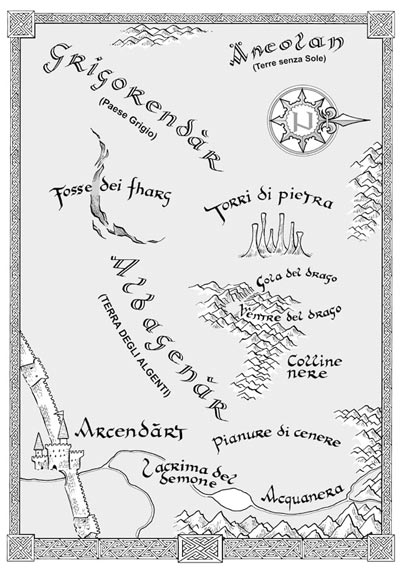 Äneolan
(Terre senza Sole)
Grigorendär
(Paese Grigio)
Fosse dei fharg
Torri di pietra
Gola del drago
Ventre del drago
Albagenär
(TERRA DEGLI ALGENTI)
Colline
nere
Arcendärt
Pianure di cenere
Lacrima del
demone
Acquanera